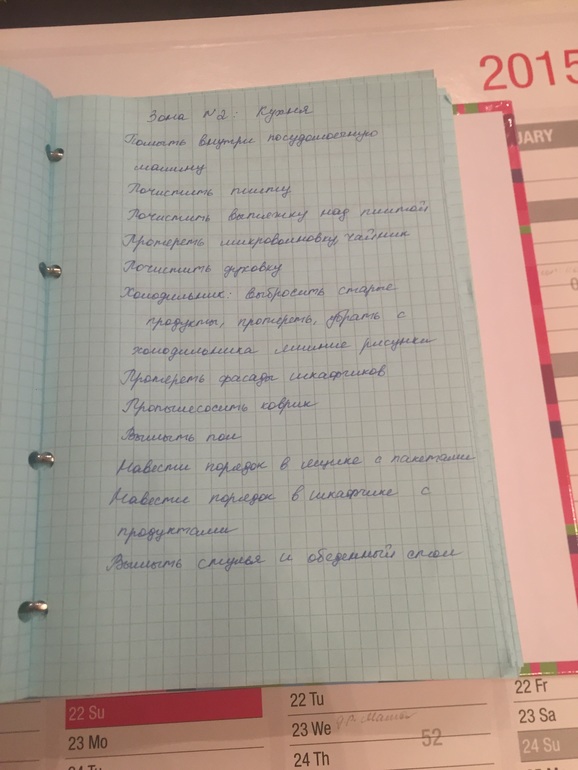 2015
JARY
Зона №2: Кухня
Помыть внутри посудомоечную
машину
Почистить плиту
Почистить вытяжку над плитой
Протереть микроволновку чайник
Почистить духовку
Холодильник: выбросить старые
продукты, протереть, убрать с
холодильника лишние рисунки
Протереть фасады шкафчиков
Пропылесосить коврик
Вымыть пол
Навести порядок в ящике с пакетами
Навести порядок в шкафчике с
продуктами
Вымыть стулья и обеденный стол
22 Su
22 Tu
22 Fr
23 Mo
23 We
23 Sa
52
24 Th
24 Su